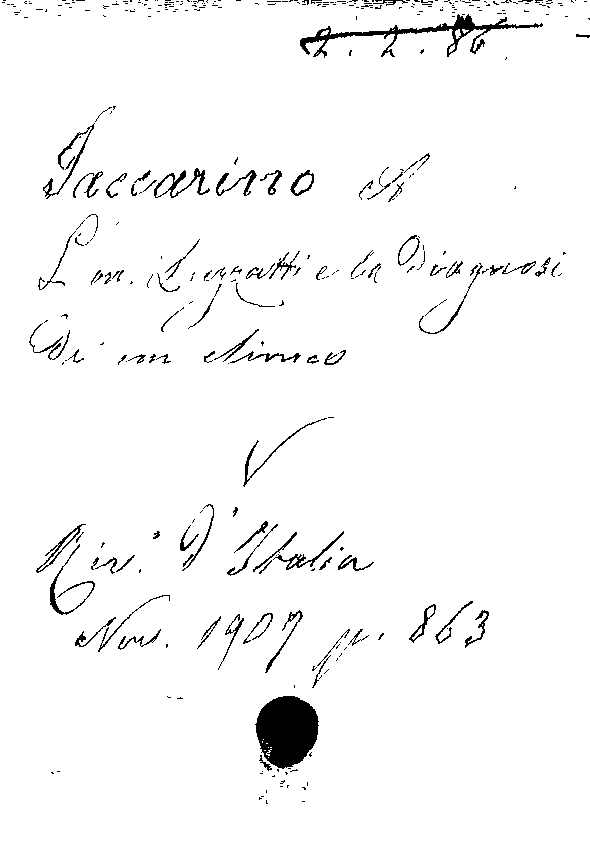 2. 2. 86
Jaccarino A
L'on. Luzzatti e la Diagnosi
Di un clinico
V
Riv.ª d'Italia
Nov. 1907 p. 863